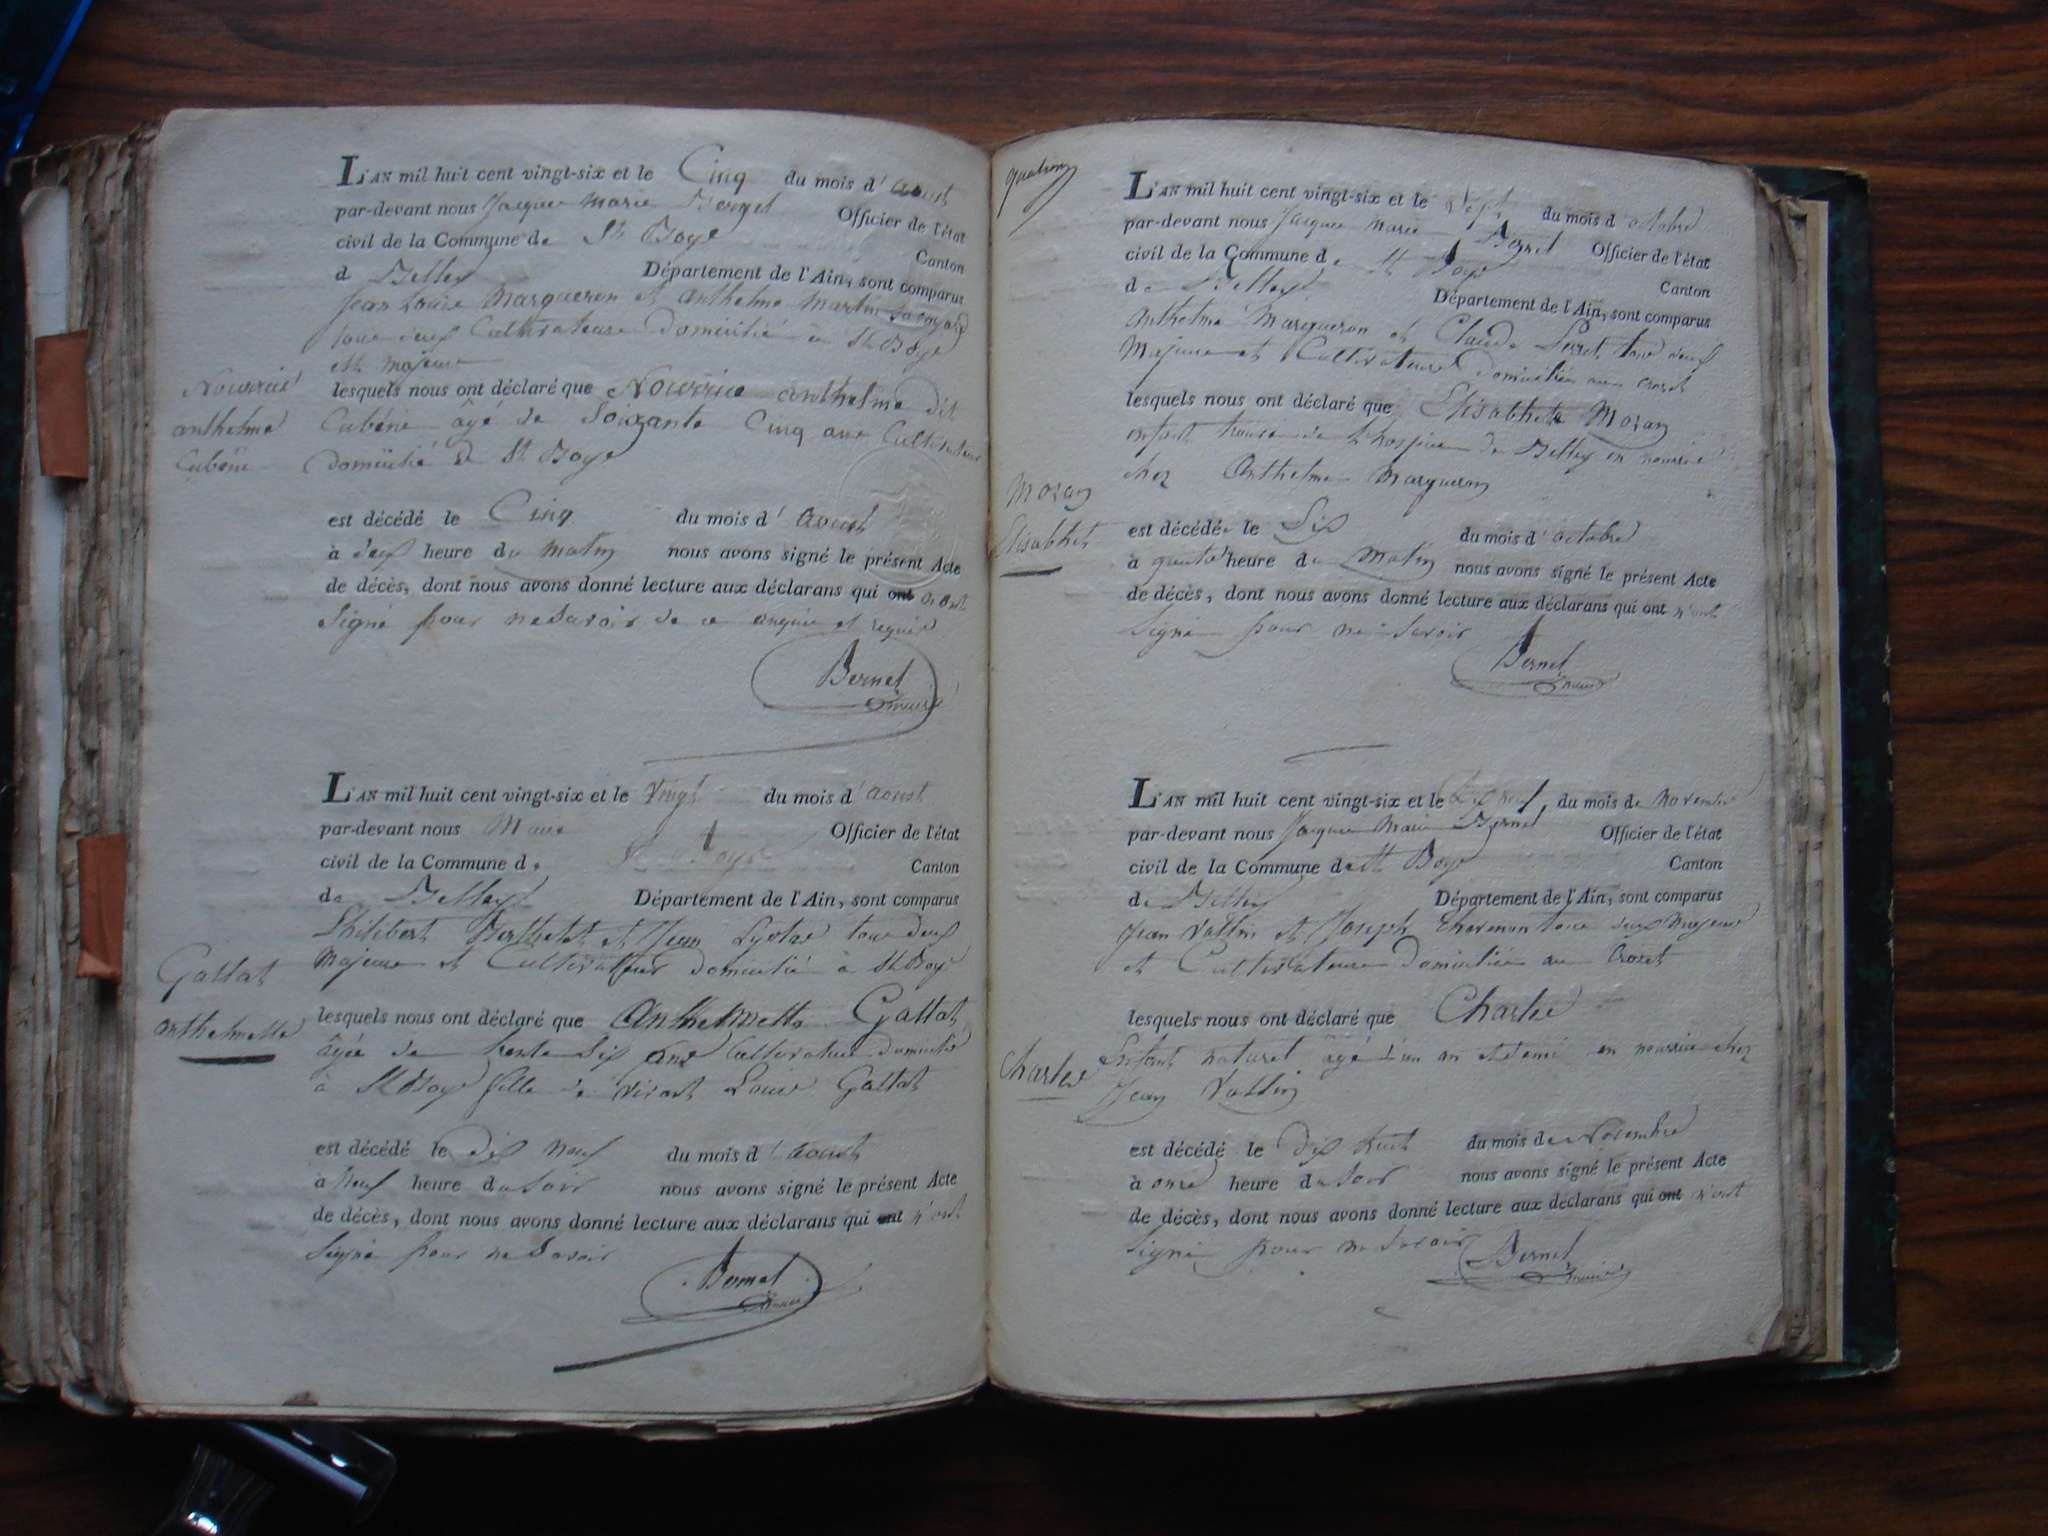 L'AN mil huit cent vingt-six et le Cinq du mois d'aoust
par-devant nous Jacque Marie Bernet Officier de l'état
civil de la Commune de St Boys Canton
d Belley Département de l'Ain, sont comparus
Jean Louise Margueron et anthelme Martin Savoyard
tous deux Cultivateurs Domicilié à St Boys
et majeur
lesquels nous ont déclaré que Nourrice anthelme dit
Cubéne âgé de Soixante Cinq ans Cultivateur
Domicilié de St Boys
Nourrice
anthelme
Cubéne
est décédé le Cinq du mois d'aoust
à deux heure du matin nous avons signé le présent Acte
de décès, dont nous avons donné lecture aux déclarans qui ont n'ont
Signé pour ne Savoir de ce enquis et requis
Bernet
maire
L'AN mil huit cent vingt-six et le Vingt du mois d'aoust
par-devant nous Maire Officier de l'état
civil de la Commune de St Boys Canton
de Belley Département de l'Ain, sont comparus
Philibert Berthelet et Jean tous deux
Majeurs et Cultivateur Domicilié à St Boys
lesquels nous ont déclaré que Anthelmette Gallat
âgée de trente Six ans Cultivateur domicilié
à St Boys fille de vivant Louise Gallat
Gallat
anthelmette
est décédé le dix neuf du mois d'aoust
à Neuf heure du Soir nous avons signé le présent Acte
de décès, dont nous avons donné lecture aux déclarans qui ont n'ont
Signé pour ne Savoir
Bernet
maire
L'AN mil huit cent vingt-six et le Sept du mois d'octobre
par-devant nous Jacque Marie Bernet Officier de l'état
civil de la Commune de St Boys Canton
de Belley Département de l'Ain, sont comparus
Anthelme Margueron et Claude Perret tous deux
Majeurs et Cultivateurs Domiciliés au Crozet
lesquels nous ont déclaré que Elisabhete Moran
enfant trouvé de L'hospice de Belley en nourrice
chez Anthelme Margueron
Moran
Elisabhet
est décédée le Six du mois d'octobre
à quatre heure du Matin nous avons signé le présent Acte
de décès, dont nous avons donné lecture aux déclarans qui ont n'ont
Signé pour ne Savoir
Bernet
maire
L'AN mil huit cent vingt-six et le Dix Neuf, du mois de Novembre
par-devant nous Jacque Marie Bernet Officier de l'état
civil de la Commune de St Boys Canton
de Belley Département de l'Ain, sont comparus
Jean Vallin et Joseph Charemon tous deux Majeurs
et Cultivateurs Domiciliés au Crozet
lesquels nous ont déclaré que Charles
Enfant naturel âgé d'un an et demi en nourrice chez
Jean Vallin
Charles
est décédé le dix huit du mois de Novembre
à onze heure du Soir nous avons signé le présent Acte
de décès, dont nous avons donné lecture aux déclarans qui ont n'ont
Signé pour ne Savoir
Bernet
maire